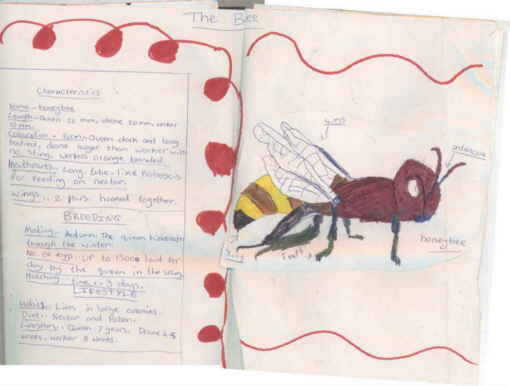 The Bee
Characteristics
Name - honeybee
Length - Queen 20 mm, drone 20 mm, worker
Queen dark and long
bodied, drone larger than worker with
no sting, workers orange banded.
Mouthparts - Long tube-like Proboscis
for feeding on nectar.
Wings - 2 pairs hooked together.
BREEDING
Mating - Autumn. The queen hibernates
through the winter.
No. of eggs. up to 1500 laid per
day by the queen in the
Hatching time - 3 days.
LIFESTYLE
Habit - Lives in large colonies.
Diet - Nectar and Pollen.
Lifespan - Queen 7 years. Drone 4-5
weeks. Worker 6 weeks.
wing
antennae
honeybee
Sting